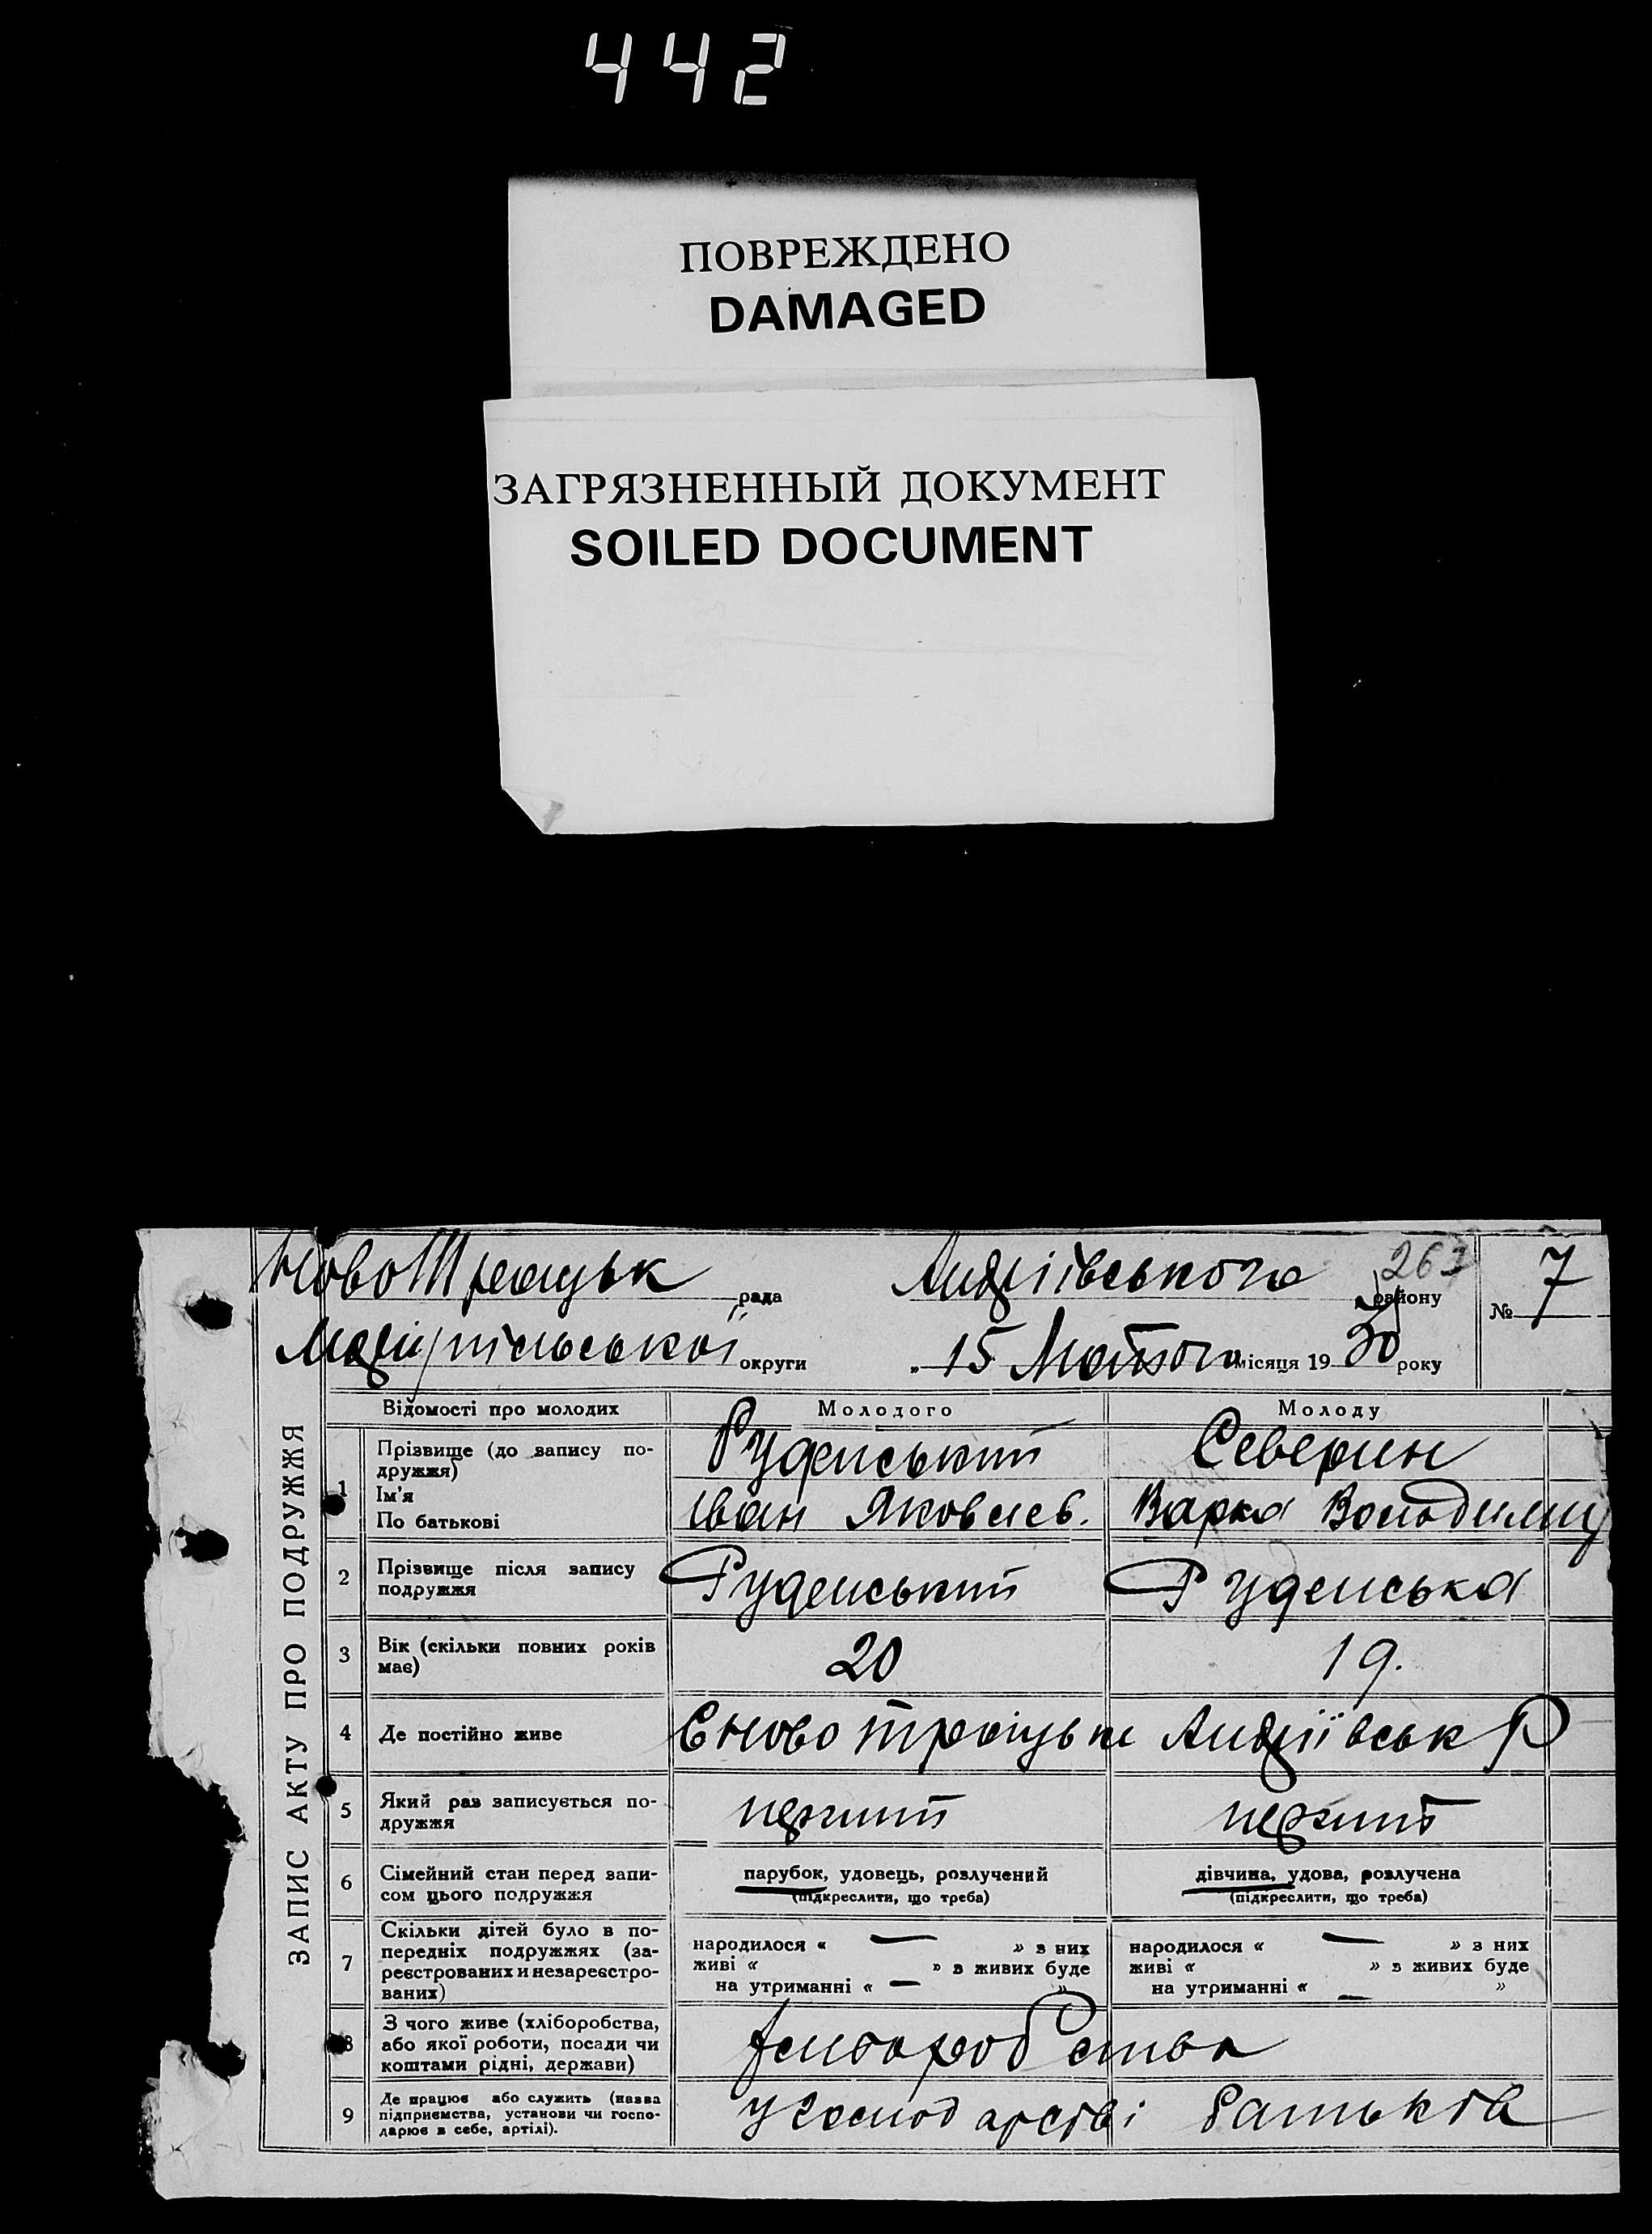 442
ПОВРЕЖДЕНО
DAMAGED
ЗАГРЯЗНЕННЫЙ ДОКУМЕНТ
SOILED DOCUMENT
рада Андріївського району 263 № 7
округи „ 15 Лютого місяця 1930 року
ЗАПИС АКТУ ПРО ПОДРУЖЖЯ
Відомості про молодих Молодого Молоду
1 Прізвище (до запису по-
дружжя) Руденський Северин
Ім'я
По батькові Іван Яковлев. Варка
2 Прізвище після запису
подружжя Руденський Руденська
3 Вік (скільки повних років
має) 20 19.
4 Де постійно живе Андріївськ Р
5 Який раз записується по-
дружжя перший перший
6 Сімейний стан перед запи-
сом цього подружжя
парубок, удовець, розлучений
(підкреслити, що треба)
дівчина, удова, розлучена
(підкреслити, що треба)
7 Скільки дітей було в по-
передніх подружжях (за-
реєстрованих и незареєстро-
ваних)
народилося « — » з них
живі « » з живих буде
на утриманні « — »
народилося « — » з них
живі « » з живих буде
на утриманні « — »
8 З чого живе (хліборобства,
або якої роботи, посади чи
коштами рідні, держави)
хліборобства
9 Де працює або служить (назва
підприємства, установи чи госпо-
дарює в себе, артілі).
у господарстві батьків